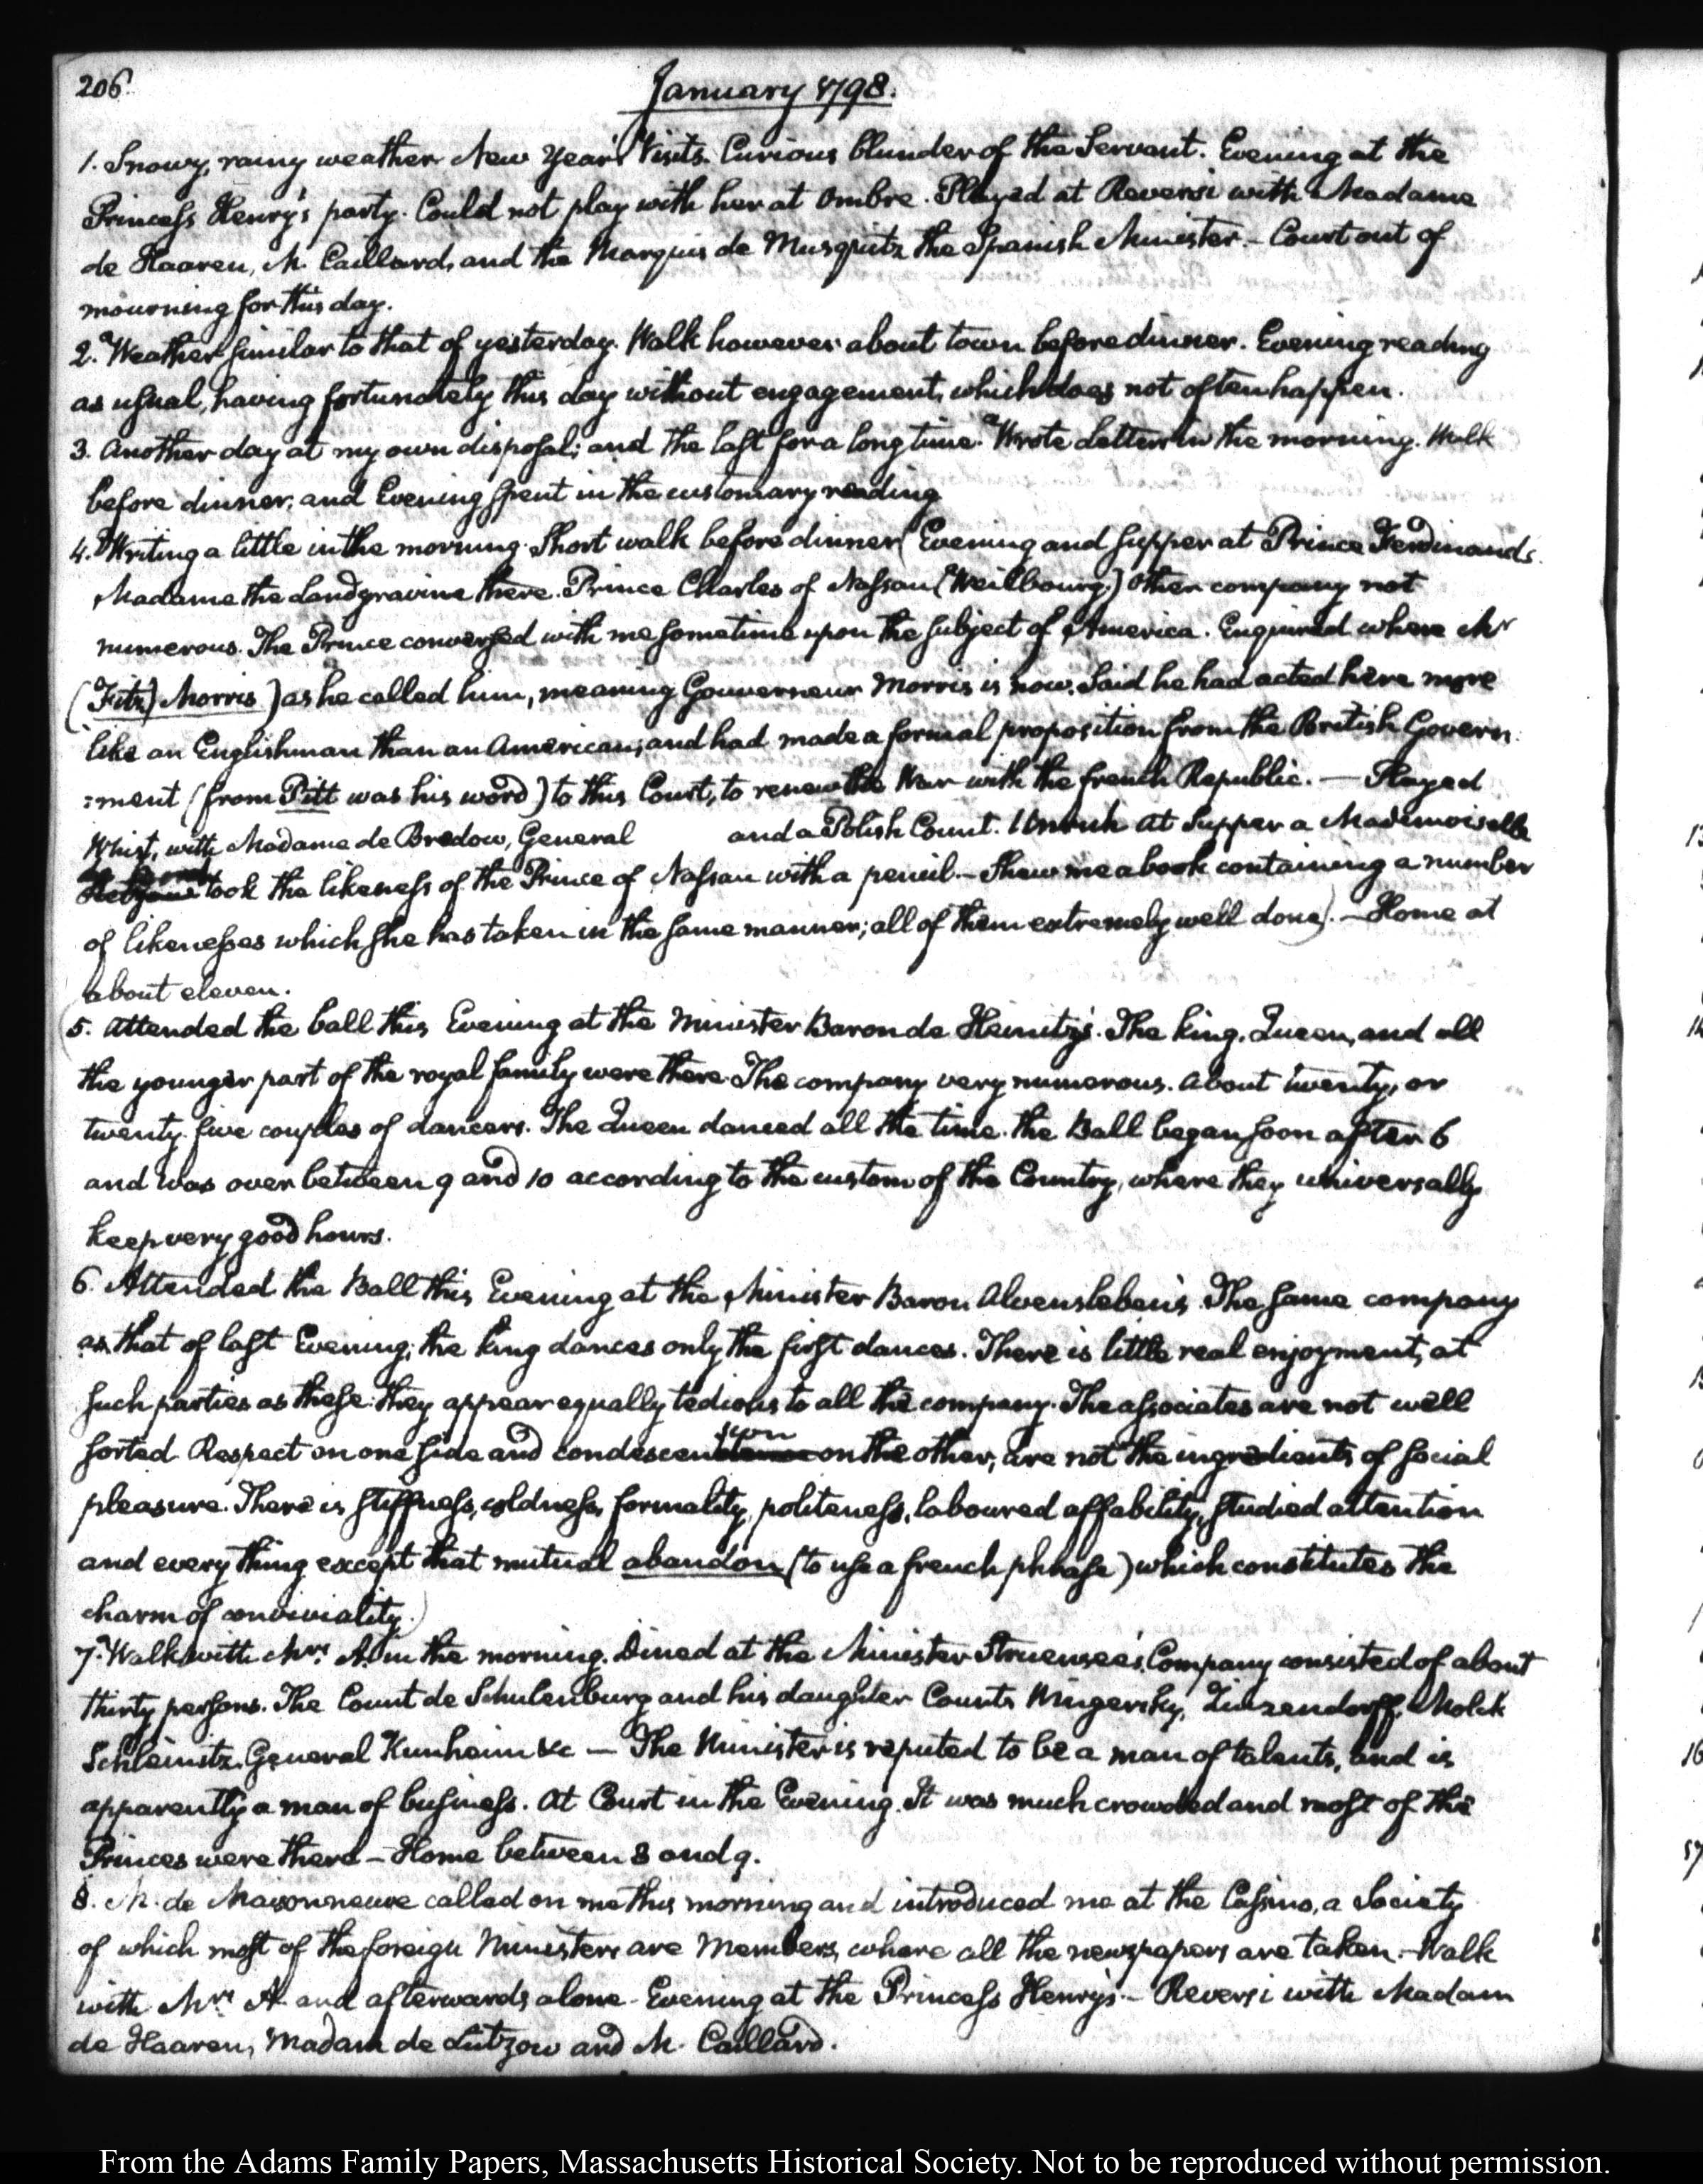 206.
January 1798.
1. Snowy, rainy weather. New Year's Visits. Curious blunder of the Servant. Evening at the
Princess Henry's party. Could not play with her at Ombre. Played at Reversi with Madame
de Haaren, M. Caillard, and the Marquis de Musquitz the Spanish Minister. — Court out of
mourning for this day.
2. Weather similar to that of yesterday. Walk however about town before dinner. Evening reading
as usual, having fortunately this day without engagement, which does not often happen.
3. Another day at my own disposal; and the last for a long time. Wrote Letters in the morning. Walk
before dinner, and Evening spent in the customary reading
4. Writing a little in the morning. Short walk before dinner (Evening and supper at Prince Ferdinand's.
Madame the Landgravine there. Prince Charles of Nassau (Weilbourg.) Other company not
numerous. The Prince conversed with me sometime upon the subject of America. Enquired where Mr
(Fitz) Morris) as he called him, meaning Gouverneur Morris is now. Said he had acted here more
like an Englishman than an American; and had made a formal proposition from the British Govern
:ment (from Pitt was his word) to this Court, to renew the War with the french Republic. — Played
Whist, with Madame de Bredow, General and a Polish Count. Unruh At supper a Mademoiselle
took the likeness of the Prince of Nassau with a pencil. — Shew me a book containing a number
of likenesses which she has taken in the same manner; all of them extremely well done). — Home at
about eleven.
5. Attended the ball this Evening at the Minister Baron de Heinitz's. The king, Queen, and all
the younger part of the royal family were there. The company very numerous. About twenty, or
twenty five couples of dancers. The Queen danced all the time. the Ball began soon after 6
and was over between 9 and 10 according to the custom of the Country, where they universally
keep very good hours.
6. Attended the Ball this Evening at the Minister Baron Alvensleben's. The same company
as that of last Evening; the king dances only the first dances. There is little real enjoyment, at
such parties as these: they appear equally tedious to all the company. The associates are not well
sorted. Respect on one side and condescension on the other, are not the ingredients of social
pleasure. There is stiffness, coldness, formality, politeness, laboured affability, studied attention
and every thing except that mutual abandon (to use a french phrase) which constitutes the
charm of conviviality.)
7. Walk with Mrs. A. in the morning. Dined at the Minister Struensee's. Company consisted of about
thirty persons. The Count de Schulenburg and his daughter Counts Wingersky, Zinzendorff, Molck
Schleinitz, General Kunheim &c — The Minister is reputed to be a man of talents, and is
apparently a man of business. At Court in the Evening. It was much crowded and most of the
Princes were there — Home between 8 and 9.
8. M. de Maisonneuve called on me this morning and introduced me at the Cassino, a Society
of which most of the foreign Ministers are Members, where all the newspapers are taken. — Walk
with Mrs. A. and afterwards alone. Evening at the Princess Henry's. — Reversi with Madam
de Haaren, Madam de Lützow and M. Caillard.
From the Adams Family Papers, Massachusetts Historical Society. Not to be reproduced without permission.